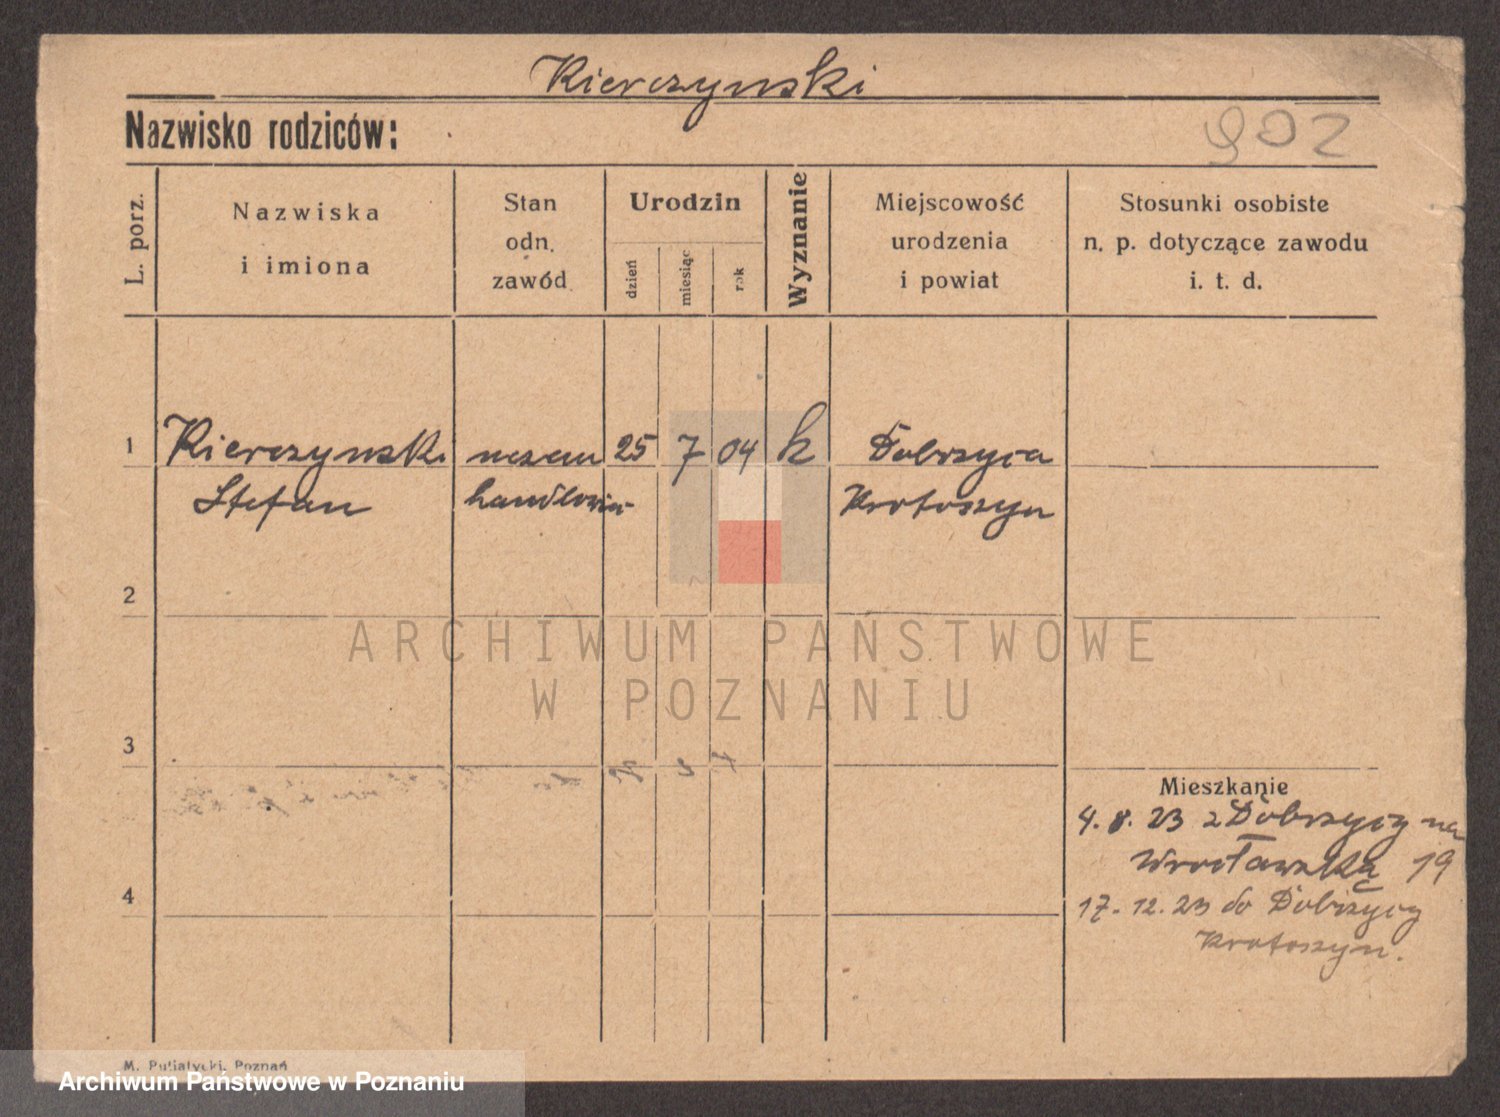 Kierczynski
Nazwisko rodziców:
902
L. porz.
Nazwiska
i imiona
Stan
odn.
zawód
Urodzin
dzień
miesiąc
rok
Wyznanie
Miejscowość
urodzenia
i powiat
Stosunki osobiste
n. p. dotyczące zawodu
i. t. d.
1 Kierczynski 25 7 04 k Dobrzyca
Stefan Krotoszyn
2
ARCHIWUM PAŃSTWOWE
W POZNANIU
3
Mieszkanie
4. 8. 23 z Dobrzycy na
Wrocławską 19
4
17. 12. 23 do Dobrzycy
Krotoszyn.
M. Putiatycki, Poznań
Archiwum Państwowe w Poznaniu